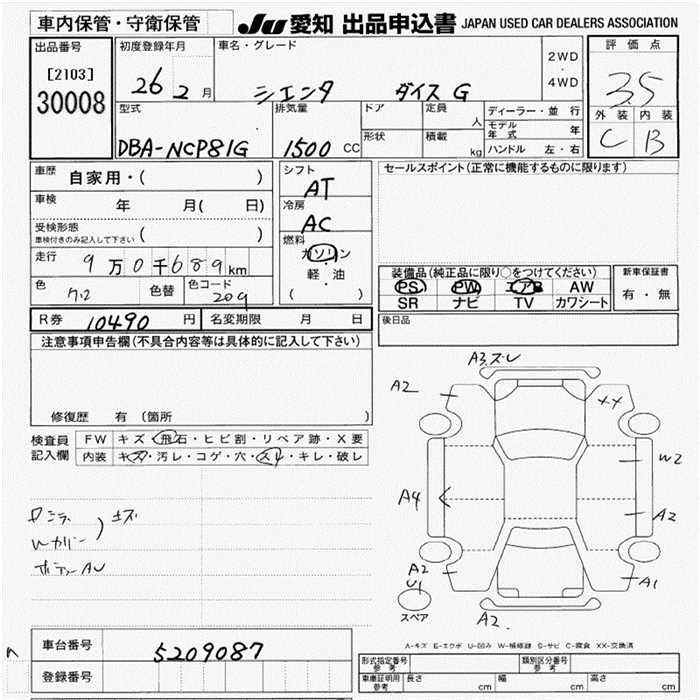 車内保管・守衛保管
JU 愛知 出品申込書 JAPAN USED CAR DEALERS ASSOCIATION
出品番号
[2103]
30008
初度登録年月
26 2 月
車名・グレード
シエンタ ダイス G
2WD
・
4WD
評価点
3.5
外装 内装
C B
型式
DBA-NCP81G
排気量
1500 CC
ドア
形状
定員
人
積載
kg
ディーラー・並行
モデル年式 年
ハンドル 左・右
車歴 自家用・( )
車検 年 月( 日)
受検形態
車検付きのみ記入して下さい ( )
走行 9万0千689km
色 色替 色コード 209
シフト
AT
冷房
AC
燃料
ガソリン
・
軽・油
( )
セールスポイント(正常に機能するものに限ります)
装備品(純正品に限り○をつけてください)
PS PW エアB AW
SR ナビ TV カワシート
新車保証書
有・無
後日品
R券 10490 円 名変期限 月 日
注意事項申告欄(不具合内容等は具体的に記入して下さい)
修復歴 有 〔箇所 〕
検査員
記入欄
FW キズ・飛石・ヒビ割・リペア跡・X要
内装 キズ・汚レ・コゲ・穴・スレ・キレ・破レ
A3.ズレ
A2
XX
W2
A4
A2
A2
U1
A1
A2.
スペア
A-キズ E-エクボ U-凹み W-補修跡 S-サビ C-腐食 XX-交換済
車台番号 5209087
登録番号
形式指定番号
参考
類別区分番号
参考
車庫証明用
参考
長さ cm 幅 cm 高さ cm